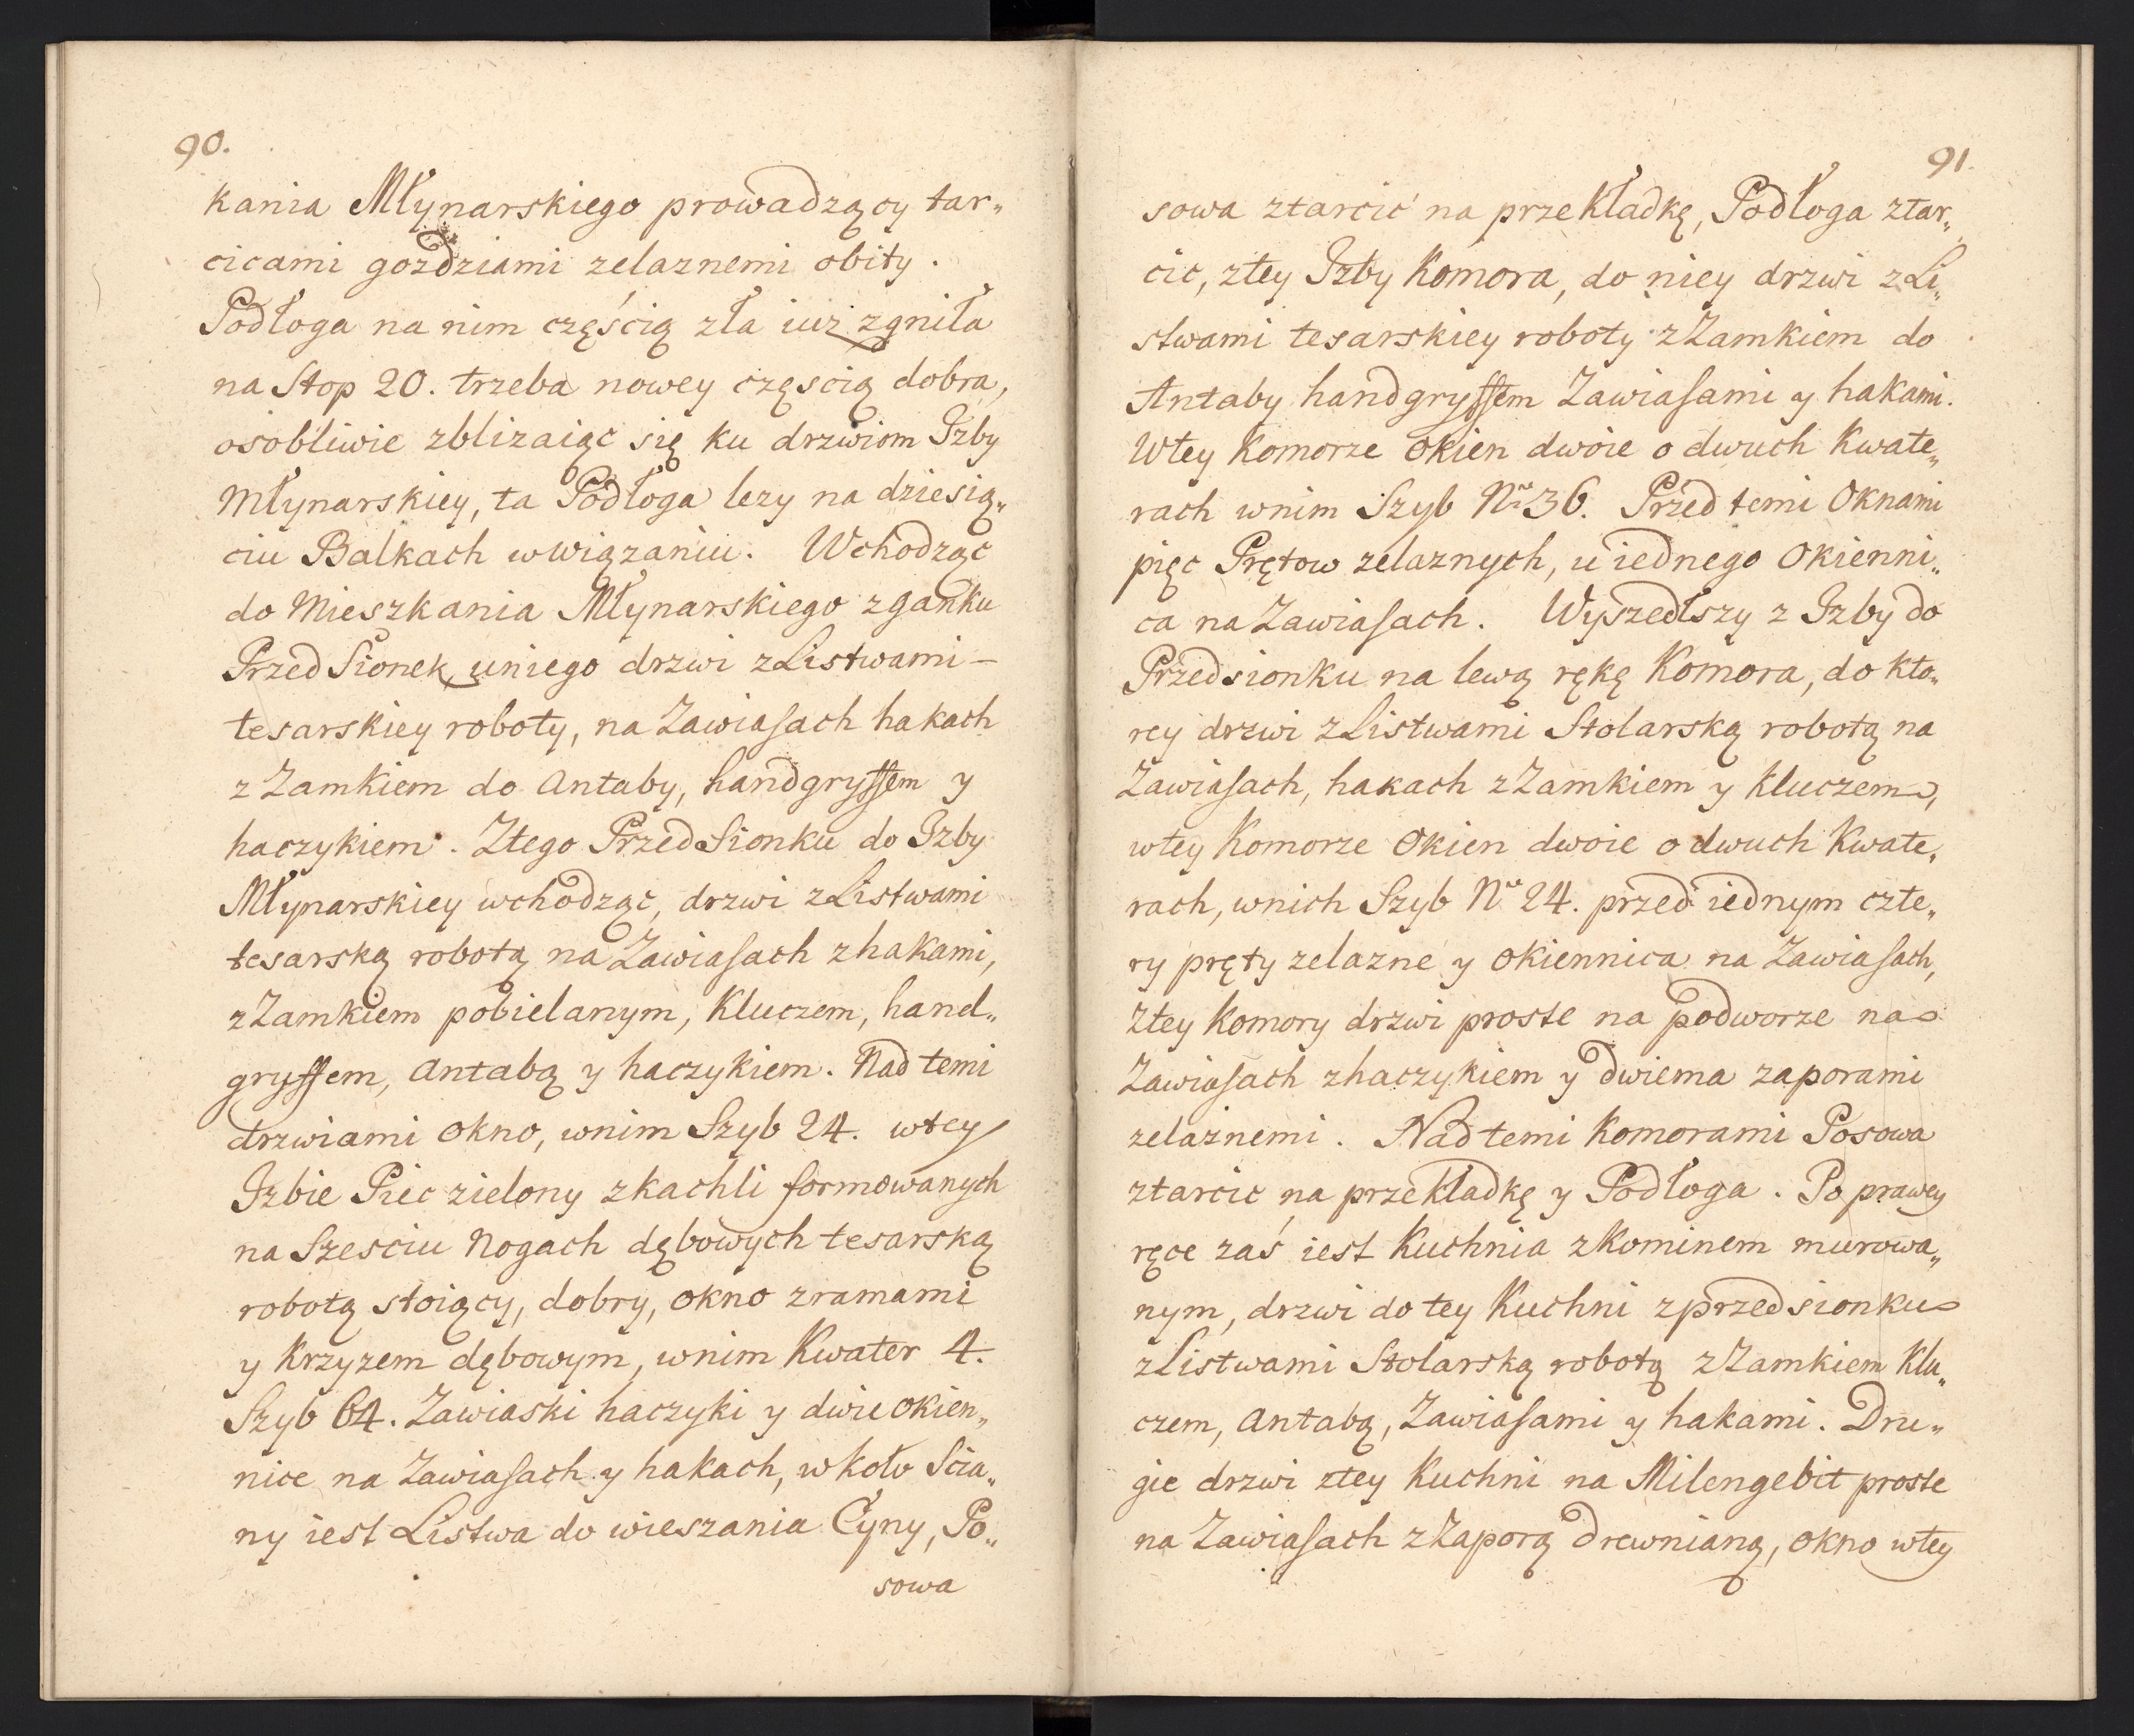 90.
kania Młynarskiego prowadzący tar„
cicami gozdziami zelaznemi obity.
Podłoga na nim częścią zła iuz zgniła
na Stop 20. trzeba nowey częscią dobra,
osobliwie zblizaiąc się ku drzwiom Izby
Młynarskiey, ta Podłoga lezy na dziesią„
ciu Balkach wwiązaniu. Wchodząc
do Mieszkania Młynarskiego z ganku
PrzedSionek, uniego drzwi z Listwami –
tesarskiey roboty, na Zawiasach hakach
z Zamkiem do Antaby, handgryffem y
haczykiem. Ztego PrzedSionku do Izby
Młynarskiey wchodząc, drzwi z Listwami
tesarską robotą na Zawiasach z hakami,
z Zamkiem pobielanym, Kluczem, hand„
gryffem, Antabą y haczykiem. Nad temi
drzwiami okno, wnim Szyb 24. wtey
Izbie Piec zielony z kachli formowanych
na Szesciu Nogach dębowych tesarską
robotą stoiący, dobry, okno z ramami
y Krzyzem dębowym, wnim Kwater 4.
Szyb 64. Zawiaski haczyki y dwie okien„
nice na Zawiasach y hakach, w koło Scia„
ny iest Listwa do wieszania Cyny, Po„
sowa
91.
sowa ztarcić na przekładkę, Podłoga ztar„
cic, ztey Izby Komora, do niey drzwi z Li„
stwami tesarskiey roboty z Zamkiem do
Antaby handgryffem Zawiasami y hakami.
Wtey Komorze Okien dwoie o dwuch Kwate„
rach wnim Szyb Nro 36. Przed temi Oknami
pięc Prętow zelaznych, u iednego Okienni„
ca na Zawiasach. Wyszedłszy z Izby do
Przedsionku na lewą rękę Komora, do kto„
rey drzwi z Listwami Stolarską robotą na
Zawiasach, hakach z Zamkiem y Kluczem,
wtey Komorze Okien dwoie o dwuch Kwate„
rach, wnich Szyb Nro 24. przed iednym czte„
ry pręty zelazne y Okiennica na Zawiasach,
Ztey Komory drzwi proste na podworze na
Zawiasach z haczykiem y dwiema zaporami
zelaznemi. Nad temi Komorami Posowa
ztarcic na przekładkę y Podłoga. Po prawey
ręce zaś iest Kuchnia z Kominem murowa„
nym, drzwi do tey Kuchni z przedsionku
z Listwami Stolarską robotą z Zamkiem Klu„
czem, Antabą, Zawiasami y hakami. Dru„
gie drzwi ztey Kuchni na Milengebit proste
na Zawiasach z Zaporą drewnianą, okno wtey